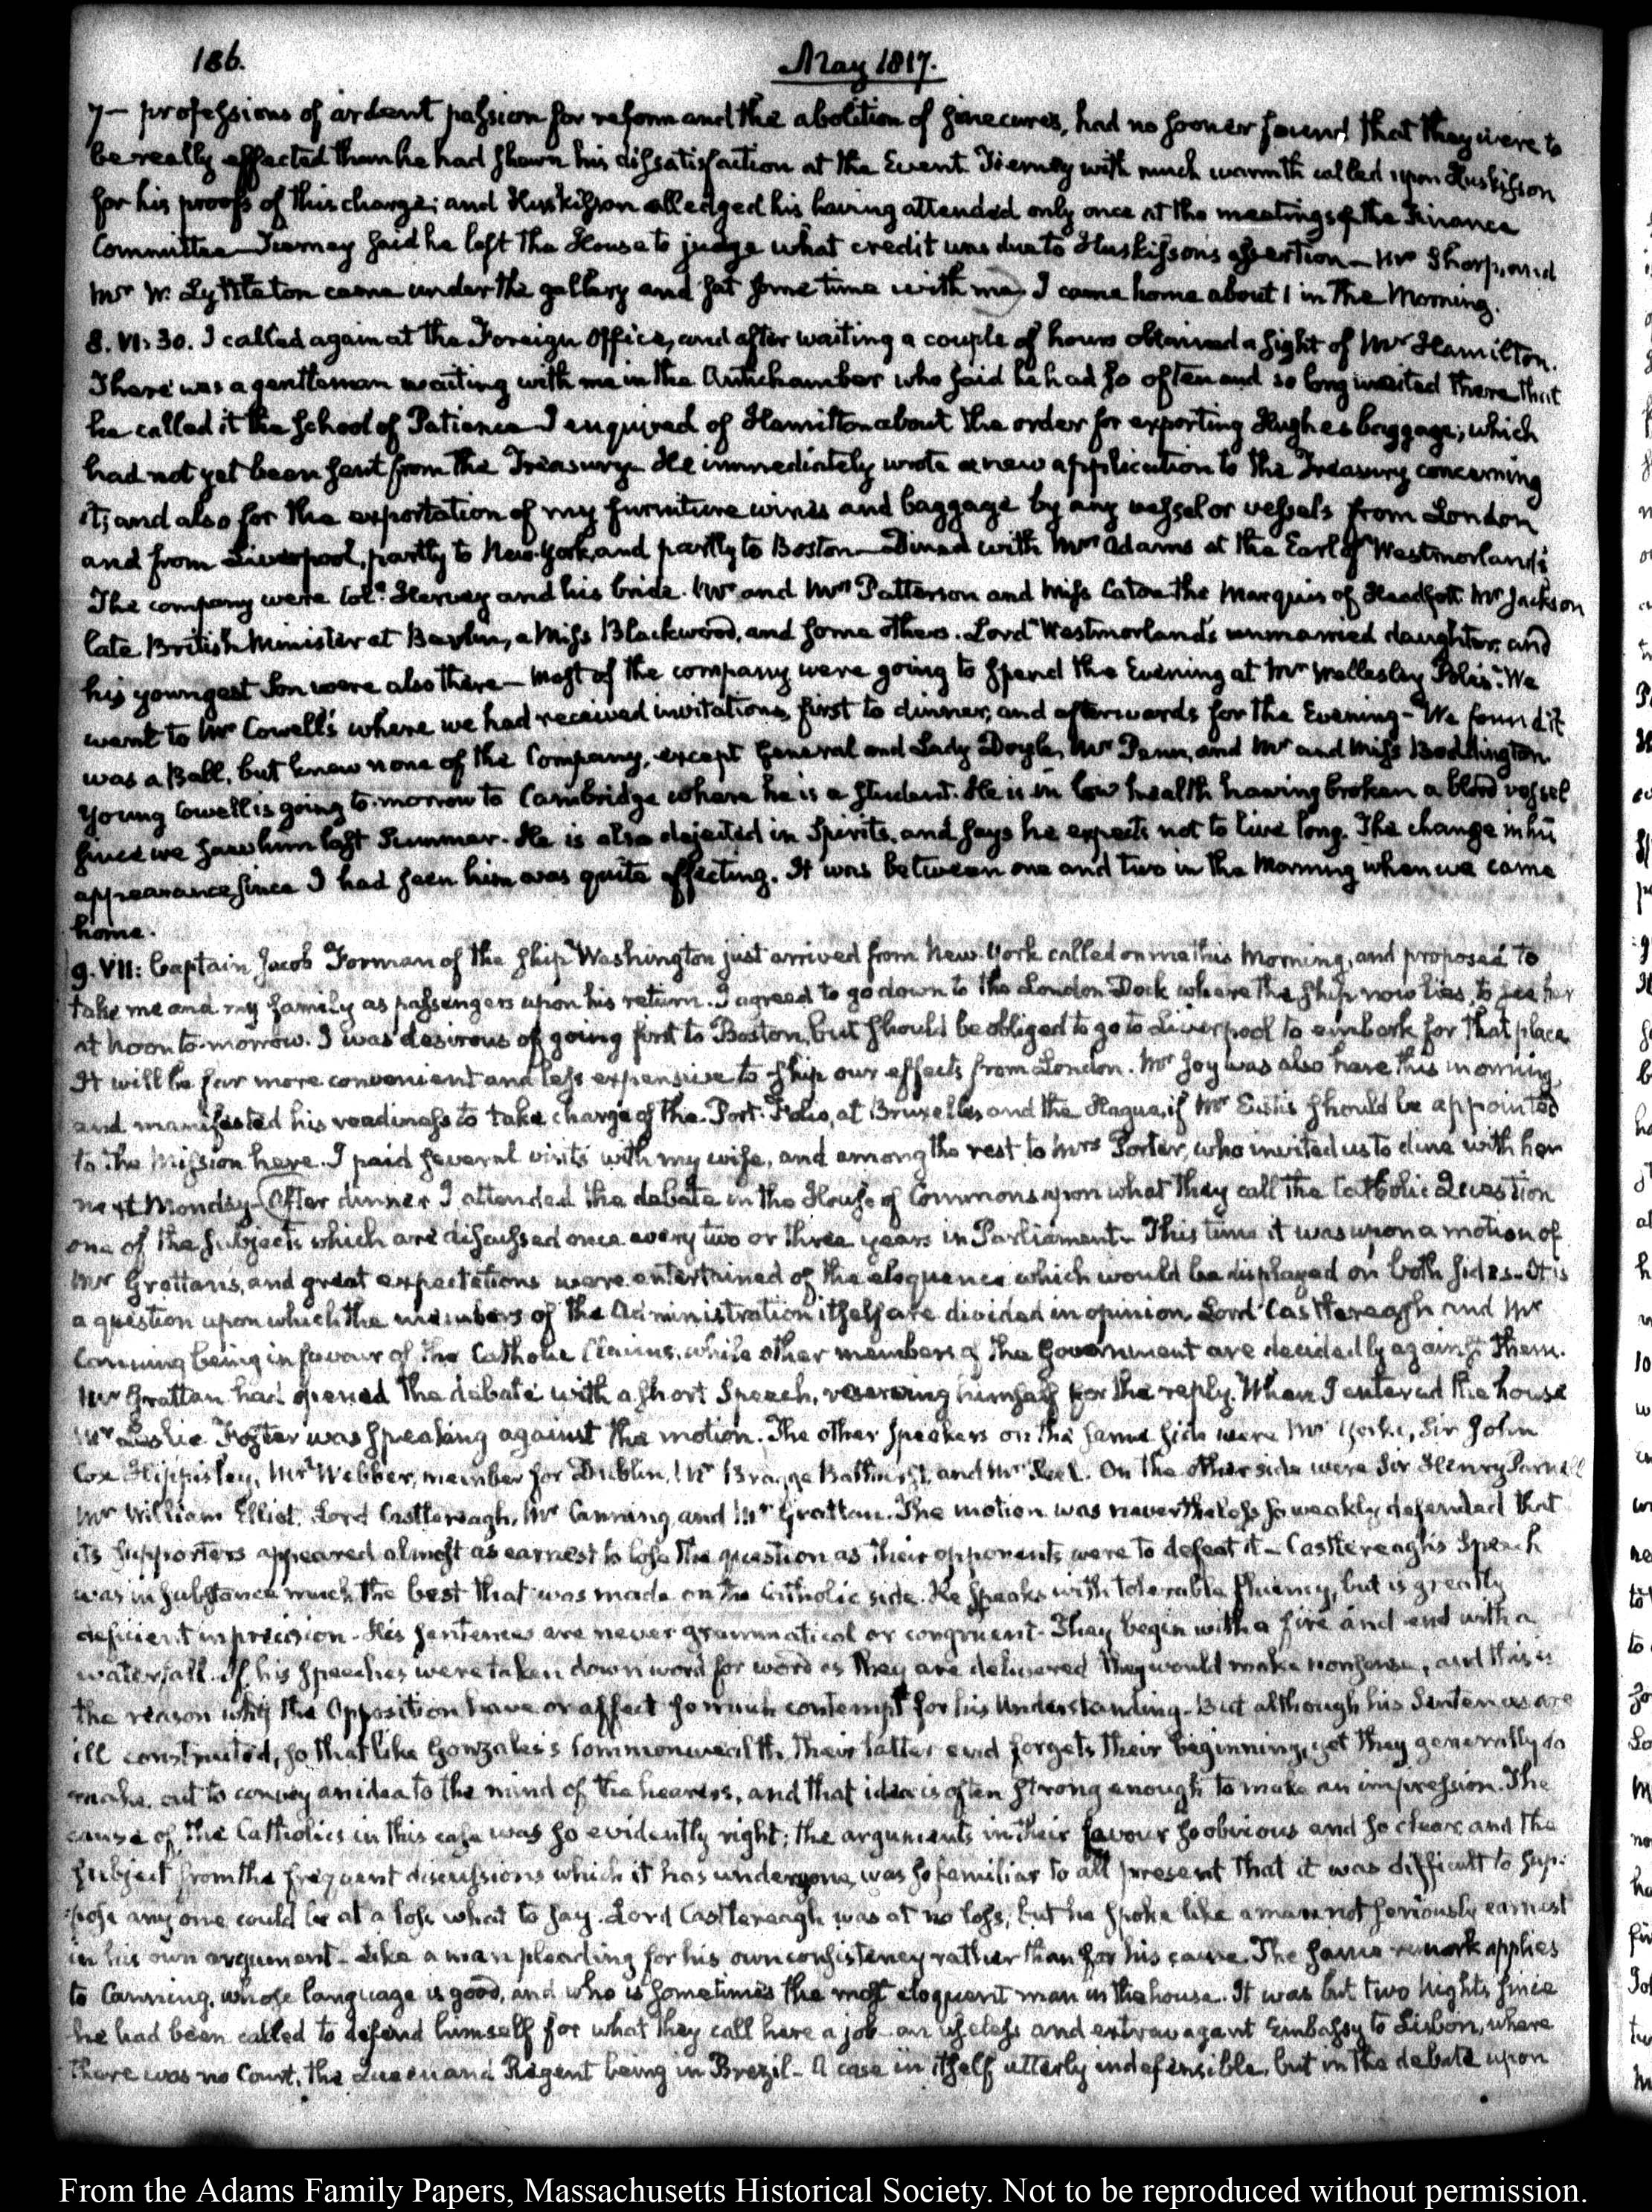 186.
May 1817.
7— professions of ardent passion for reform and the abolition of sinecures, had no sooner found that they were to
be really effected than he had shewn his dissatisfaction at the Event. Tierney with much warmth called upon Huskisson
for his proofs of this charge; and Huskisson alledged his having attended only once at the meetings of the Finance
Committee— Tierney said he left the House to judge what credit was due to Huskisson's assertion— Mr Sharp, and
Mr W. Lyttleton came under the gallery and sat some time with me) I came home about 1 in the Morning.
8. VI: 30. I called again at the Foreign Office, and after waiting a couple of hours obtained a sight of Mr Hamilton.
There was a gentleman waiting with me in the Antichamber who said he had so often and so long waited there that
he called it the School of Patience— I enquired of Hamilton about the order for exporting Hughes baggage; which
had not yet been sent from the Treasury. He immediately wrote a new application to the Treasury concerning
it; and also for the exportation of my furniture wines and baggage by any vessel or vessels from London
and from Liverpool, partly to New-York, and partly to Boston— Dined with Mrs Adams at the Earl of Westmorland's
The company were Coll. Hervey and his bride. Mr and Mrs Patterson and Miss Caton the Marquis of Headfort Mr Jackson
late British Minister at Berlin, a Miss Blackwood, and some others. Lord Westmorland's unmarried daughter, and
his youngest Son were also there— Most of the company were going to spend the Evening at Mr Wellesley Pole's. We
went to Mr Cowell's where we had received invitations, first to dinner, and afterwards for the Evening— We found it
was a Ball, but knew none of the Company, except General and Lady Doyle, Mr Penn, and Mr and Miss Boddington.
Young Cowell is going to-morrow to Cambridge where he is a Student. He is in low health having broken a blood vessel
since we saw him last Summer— He is also dejected in Spirits, and says he expects not to live long. The change in his
appearance since I had seen him was quite affecting. It was between one and two in the Morning when we came
home.
9. VII: Captain Jacob Forman of the Ship Washington just arrived from New-York called on me this Morning, and proposed to
take me and my family as passengers upon his return. I agreed to go down to the London Dock where the ship now lies, to see her
at Noon to-morrow. I was desirous of going first to Boston, but should be obliged to go to Liverpool to embark for that place
It will be far more convenient and less expensive to ship our effects from London. Mr Joy was also here this morning,
and manifested his readiness to take charge of the Port-Folio, at Bruxelles and the Hague, if Mr Eustis should be appointed
to the Mission here. I paid several visits with my wife, and among the rest to Mrs Porter, who invited us to dine with her
next Monday— (After dinner I attended the debate in the House of Commons upon what they call the Catholic Question
one of the subjects which are discussed once every two or three years in Parliament— This time it was upon a motion of
Mr Grattan's, and great expectations were entertained of the eloquence which would be displayed on both sides— It is
a question upon which the members of the Administration itself are divided in opinion. Lord Castlereagh and Mr
Canning being in favour of the Catholic Claims, while other members of the Government are decidedly against them.
Mr Grattan had opened the debate with a short Speech, reserving himself for the reply. When I entered the house
Mr Leslie Foster was speaking against the motion. The other speakers on the same side were Mr Yorke, Sir John
Cox Hippisley, Mr Webber, member for Dublin, Mr Bragge Bathurst, and Mr Peel. On the other side were Sir Henry Parnell
Mr William Elliot, Lord Castlereagh, Mr Canning and Mr Grattan. The motion was nevertheless so weakly defended that
its supporters appeared almost as earnest to lose the question as their opponents were to defeat it— Castlereagh's Speech
was in substance much the best that was made on the Catholic side. He speaks with tolerable fluency, but is greatly
deficient in precision— His sentences are never grammatical or congruent— They begin with a fire and end with a
waterfall. If his speeches were taken down word for word as they are delivered they would make nonsense, and this is
the reason why the Opposition have or affect so much contempt for his Understanding— But although his Sentences are
ill constructed, so that like Gonzales's Commonwealth, their latter end forgets their beginning, yet they generally do
make out to convey an idea to the mind of the hearers, and that idea is often strong enough to make an impression. The
cause of the Catholics in this case was so evidently right; the arguments in their favour so obvious and so clear, and the
subject from the frequent discussions which it has undergone, was so familiar to all present that it was difficult to sup-
:pose any one could be at a loss what to say. Lord Castlereagh was at no loss; but he spoke like a man not seriously earnest
in his own argument— Like a man pleading for his own consistency rather than for his cause. The same remark applies
to Canning, whose language is good, and who is sometimes the most eloquent man in the house. It was but two nights since
he had been called to defend himself for what they call here a job— an useless and extravagant Embassy to Lisbon, where
there was no Court, the Queen and Regent being in Brezil— A case in itself utterly indefensible, but in the debate upon
From the Adams Family Papers, Massachusetts Historical Society. Not to be reproduced without permission.